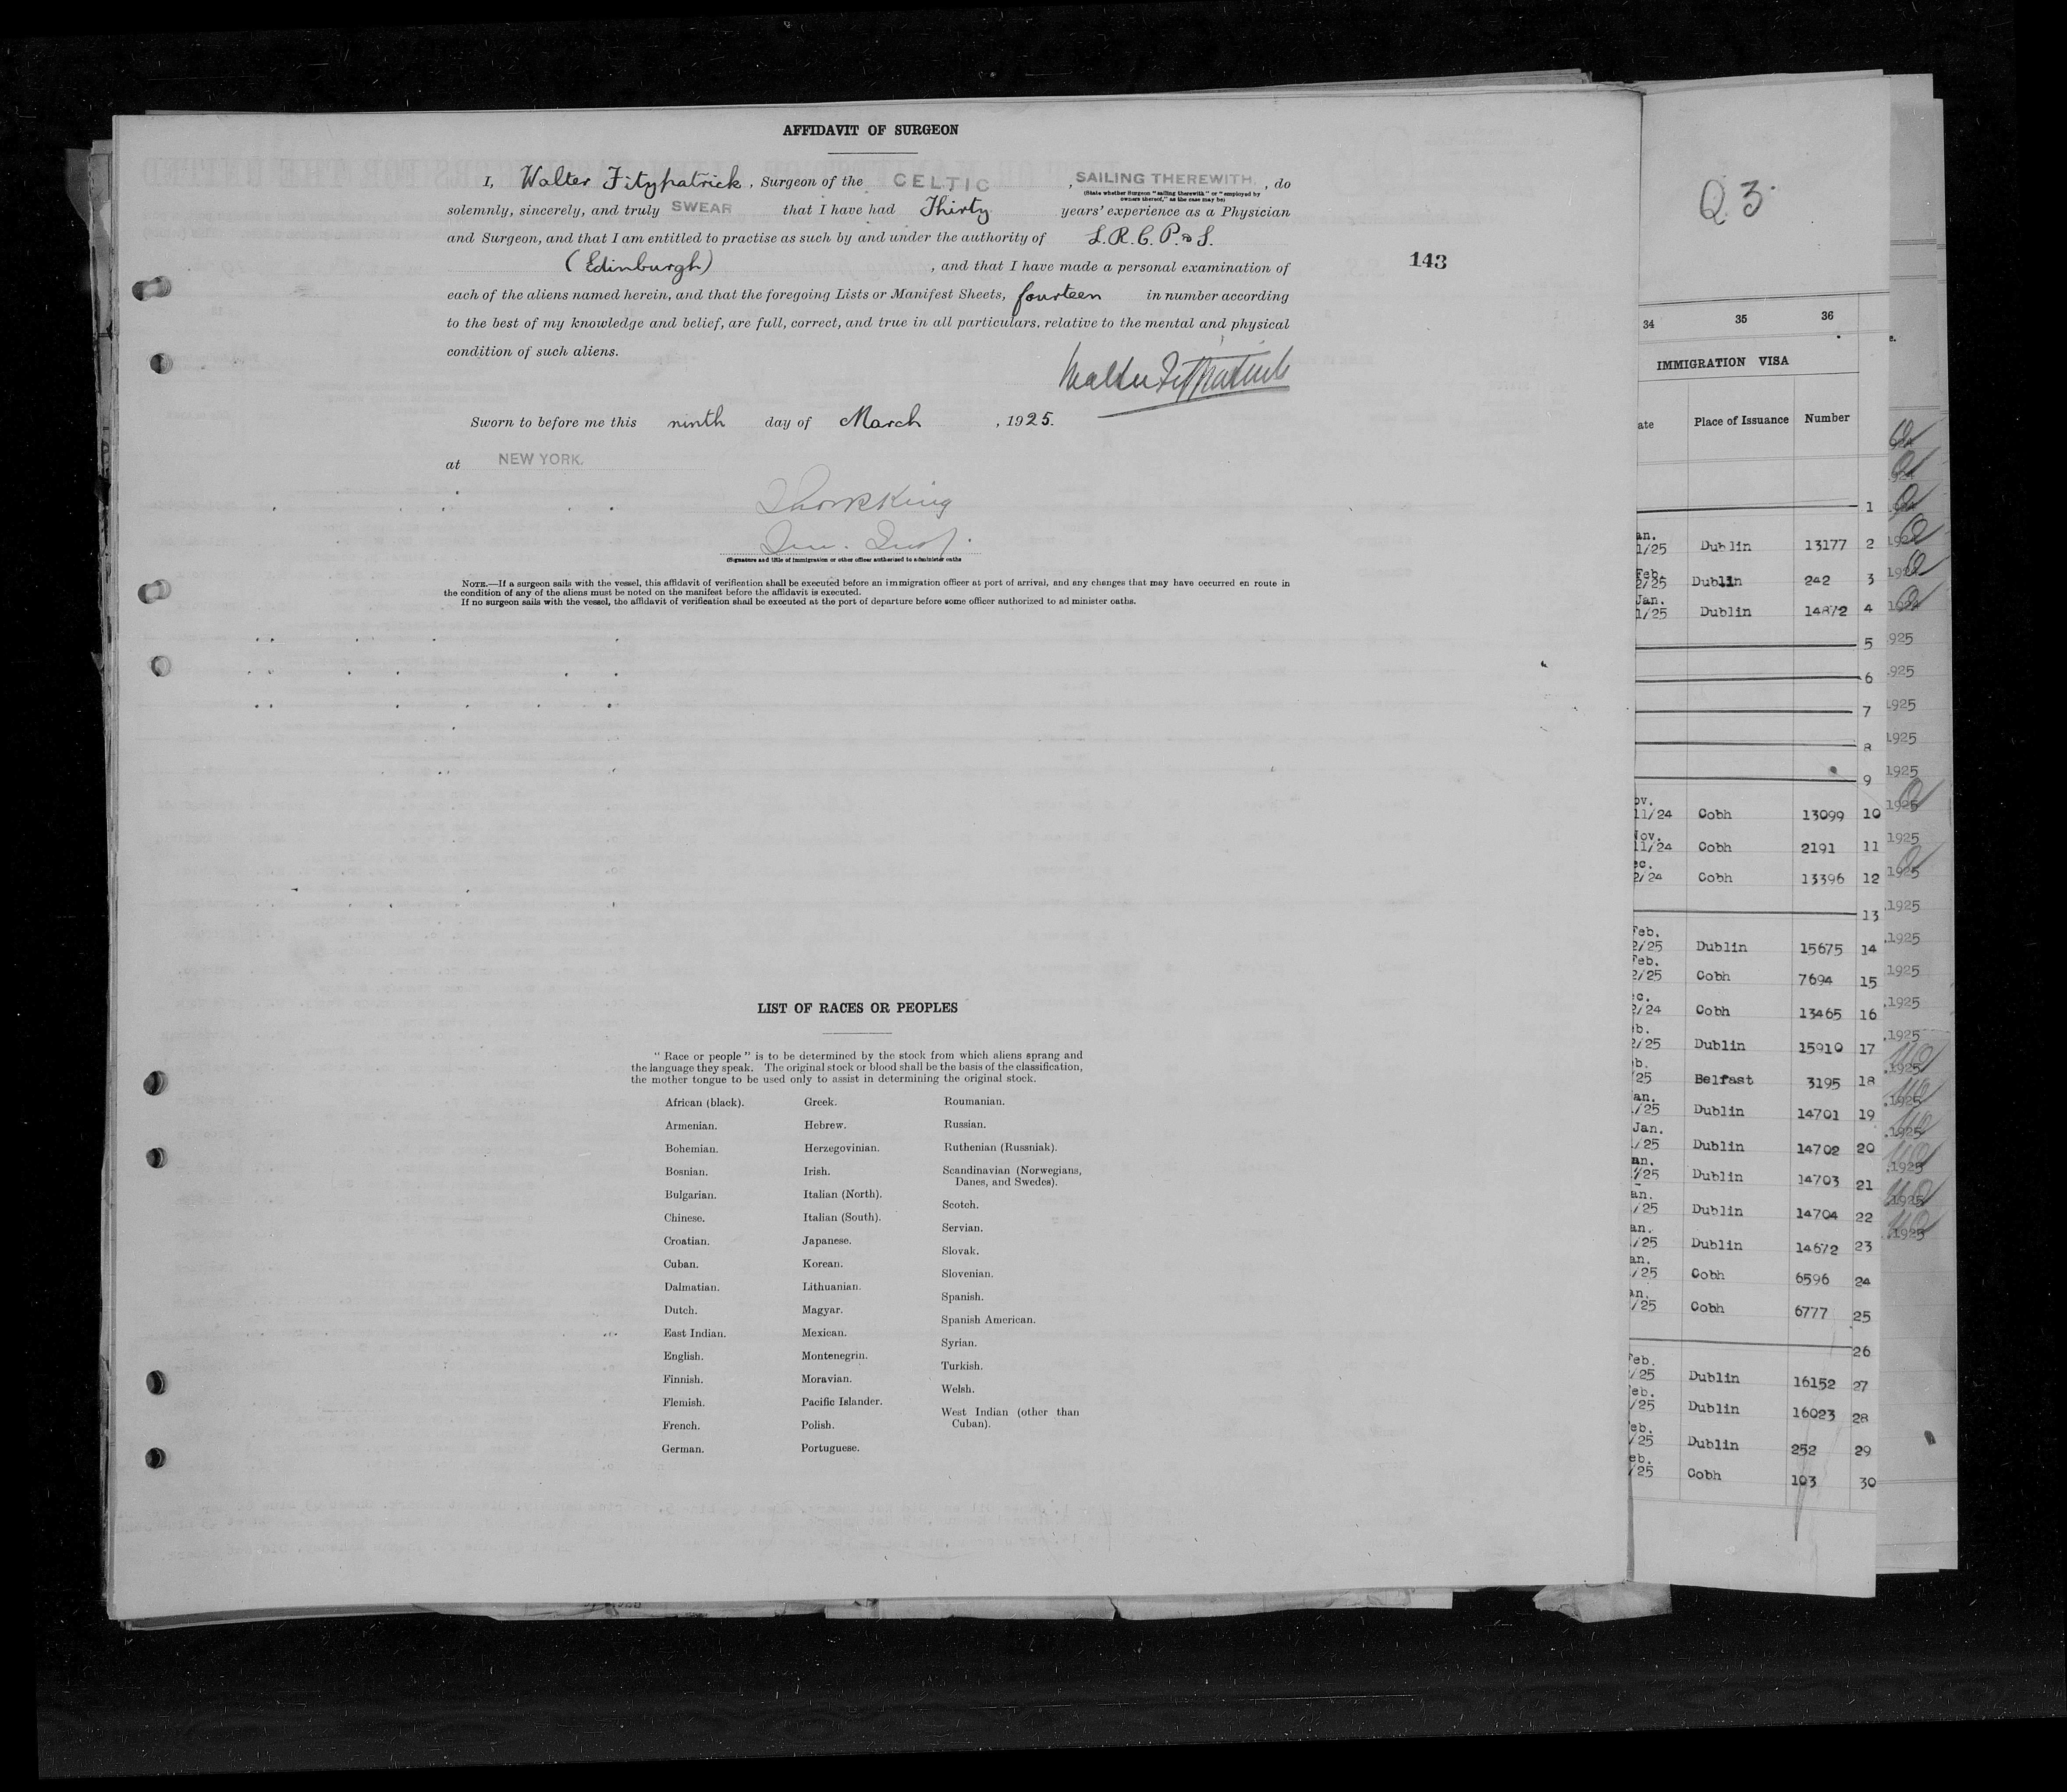 AFFIDAVIT OF SURGEON
I, Walter Fitzpatrick, Surgeon of the CELTIC, SAILING THEREWITH, do
(State whether Surgeon "sailing therewith" or "employed by
owners thereof," as the case may be)
solemnly, sincerely, and truly SWEAR that I have had Thirty years' experience as a Physician
and Surgeon, and that I am entitled to practise as such by and under the authority of L.R.C.P.&S.
(Edinburgh), and that I have made a personal examination of
each of the aliens named herein, and that the foregoing Lists or Manifest Sheets, fourteen in number according
to the best of my knowledge and belief, are full, correct, and true in all particulars. relative to the mental and physical
condition of such aliens.
Walter Fitzpatrick
Sworn to before me this ninth day of March, 1925.
at NEW YORK.
King
(Signature and title of immigration or other officer authorized to administer oaths
NOTE.—If a surgeon sails with the vessel, this affidavit of verification shall be executed before an immigration officer at port of arrival, and any changes that may have occurred en route in
the condition of any of the aliens must be noted on the manifest before the affidavit is executed.
If no surgeon sails with the vessel, the affidavit of verification shall be executed at the port of departure before some officer authorized to administer oaths.
143
LIST OF RACES OR PEOPLES
"Race or people" is to be determined by the stock from which aliens sprang and
the language they speak. The original stock or blood shall be the basis of the classification,
the mother tongue to be used only to assist in determining the original stock.
African (black).
Armenian.
Bohemian.
Bosnian.
Bulgarian.
Chinese.
Croatian.
Cuban.
Dalmatian.
Dutch.
East Indian.
English.
Finnish.
Flemish.
French.
German.
Greek.
Hebrew.
Herzegovinian.
Irish.
Italian (North).
Italian (South).
Japanese.
Korean.
Lithuanian.
Magyar.
Mexican.
Montenegrin.
Moravian.
Pacific Islander.
Polish.
Portuguese.
Roumanian.
Russian.
Ruthenian (Russniak).
Scandinavian (Norwegians,
Danes, and Swedes).
Scotch.
Servian.
Slovak.
Slovenian.
Spanish.
Spanish American.
Syrian.
Turkish.
Welsh.
West Indian (other than
Cuban).
Q 3
34 35 36
IMMIGRATION VISA
ate Place of Issuance Number
1
an.
1/25 Dublin 13177 2
Feb.
2/25 Dublin 242 3
Jan.
1/25 Dublin 14872 4
5
6
7
8
9
ov.
11/24 Cobh 13099 10
Nov.
11/24 Cobh 2191 11
ec.
2/24 Cobh 13396 12
13
Feb.
2/25 Dublin 15675 14
Feb.
2/25 Cobh 7694 15
ec.
2/24 Cobh 13465 16
eb.
2/25 Dublin 15910 17
eb.
/25 Belfast 3195 18
an.
/25 Dublin 14701 19
Jan.
/25 Dublin 14702 20
an.
/25 Dublin 14703 21
an.
/25 Dublin 14704 22
an.
/25 Dublin 14672 23
an.
/25 Cobh 6596 24
an.
/25 Cobh 6777 25
26
Feb.
/25 Dublin 16152 27
eb.
/25 Dublin 16023 28
eb.
/25 Dublin 252 29
eb.
/25 Cobh 103 30